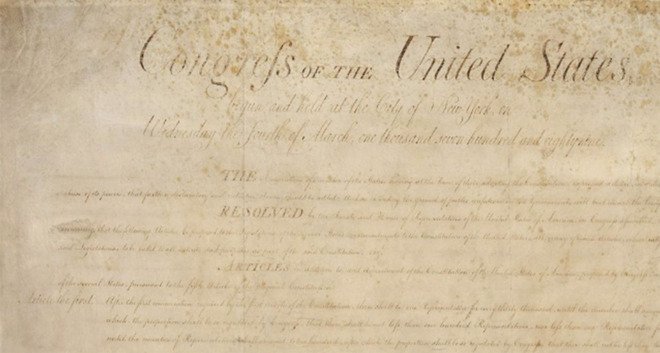 Congreſs OF THE United States,
begun and held at the City of New York, on
Wednesday the fourth of March, one thousand seven hundred and eighty nine.
THE of the States, having at the time of their adopting the Constitution, expressed a desire,
of its powers, that further declaratory and restrictive clauses should be added: And as extending the ground of public confidence in the Government, will best
RESOLVED by the Senate and House of Representatives of the United States of America, in Congress assembled,
concurring, that the following Articles be proposed to the Legislatures of the several States, as amendments to the Constitution of the United States,
said Legislatures, to be valid to all intents and purposes, as part of the said Constitution; viz.
ARTICLES in addition to, and amendment of the Constitution of the United States of America, proposed by Congress
of the several States, pursuant to the fifth Article of the original Constitution.
Article the first. After the first enumeration required by the first article of the Constitution, there shall be one Representative for every thirty thousand, until the number shall
which, the proportion shall be so regulated by Congress, that there shall not be less than one hundred Representatives, nor less than one Representative
until the number of Representatives shall amount to two hundred, after which the proportion shall be so regulated by Congress, that there shall not be less